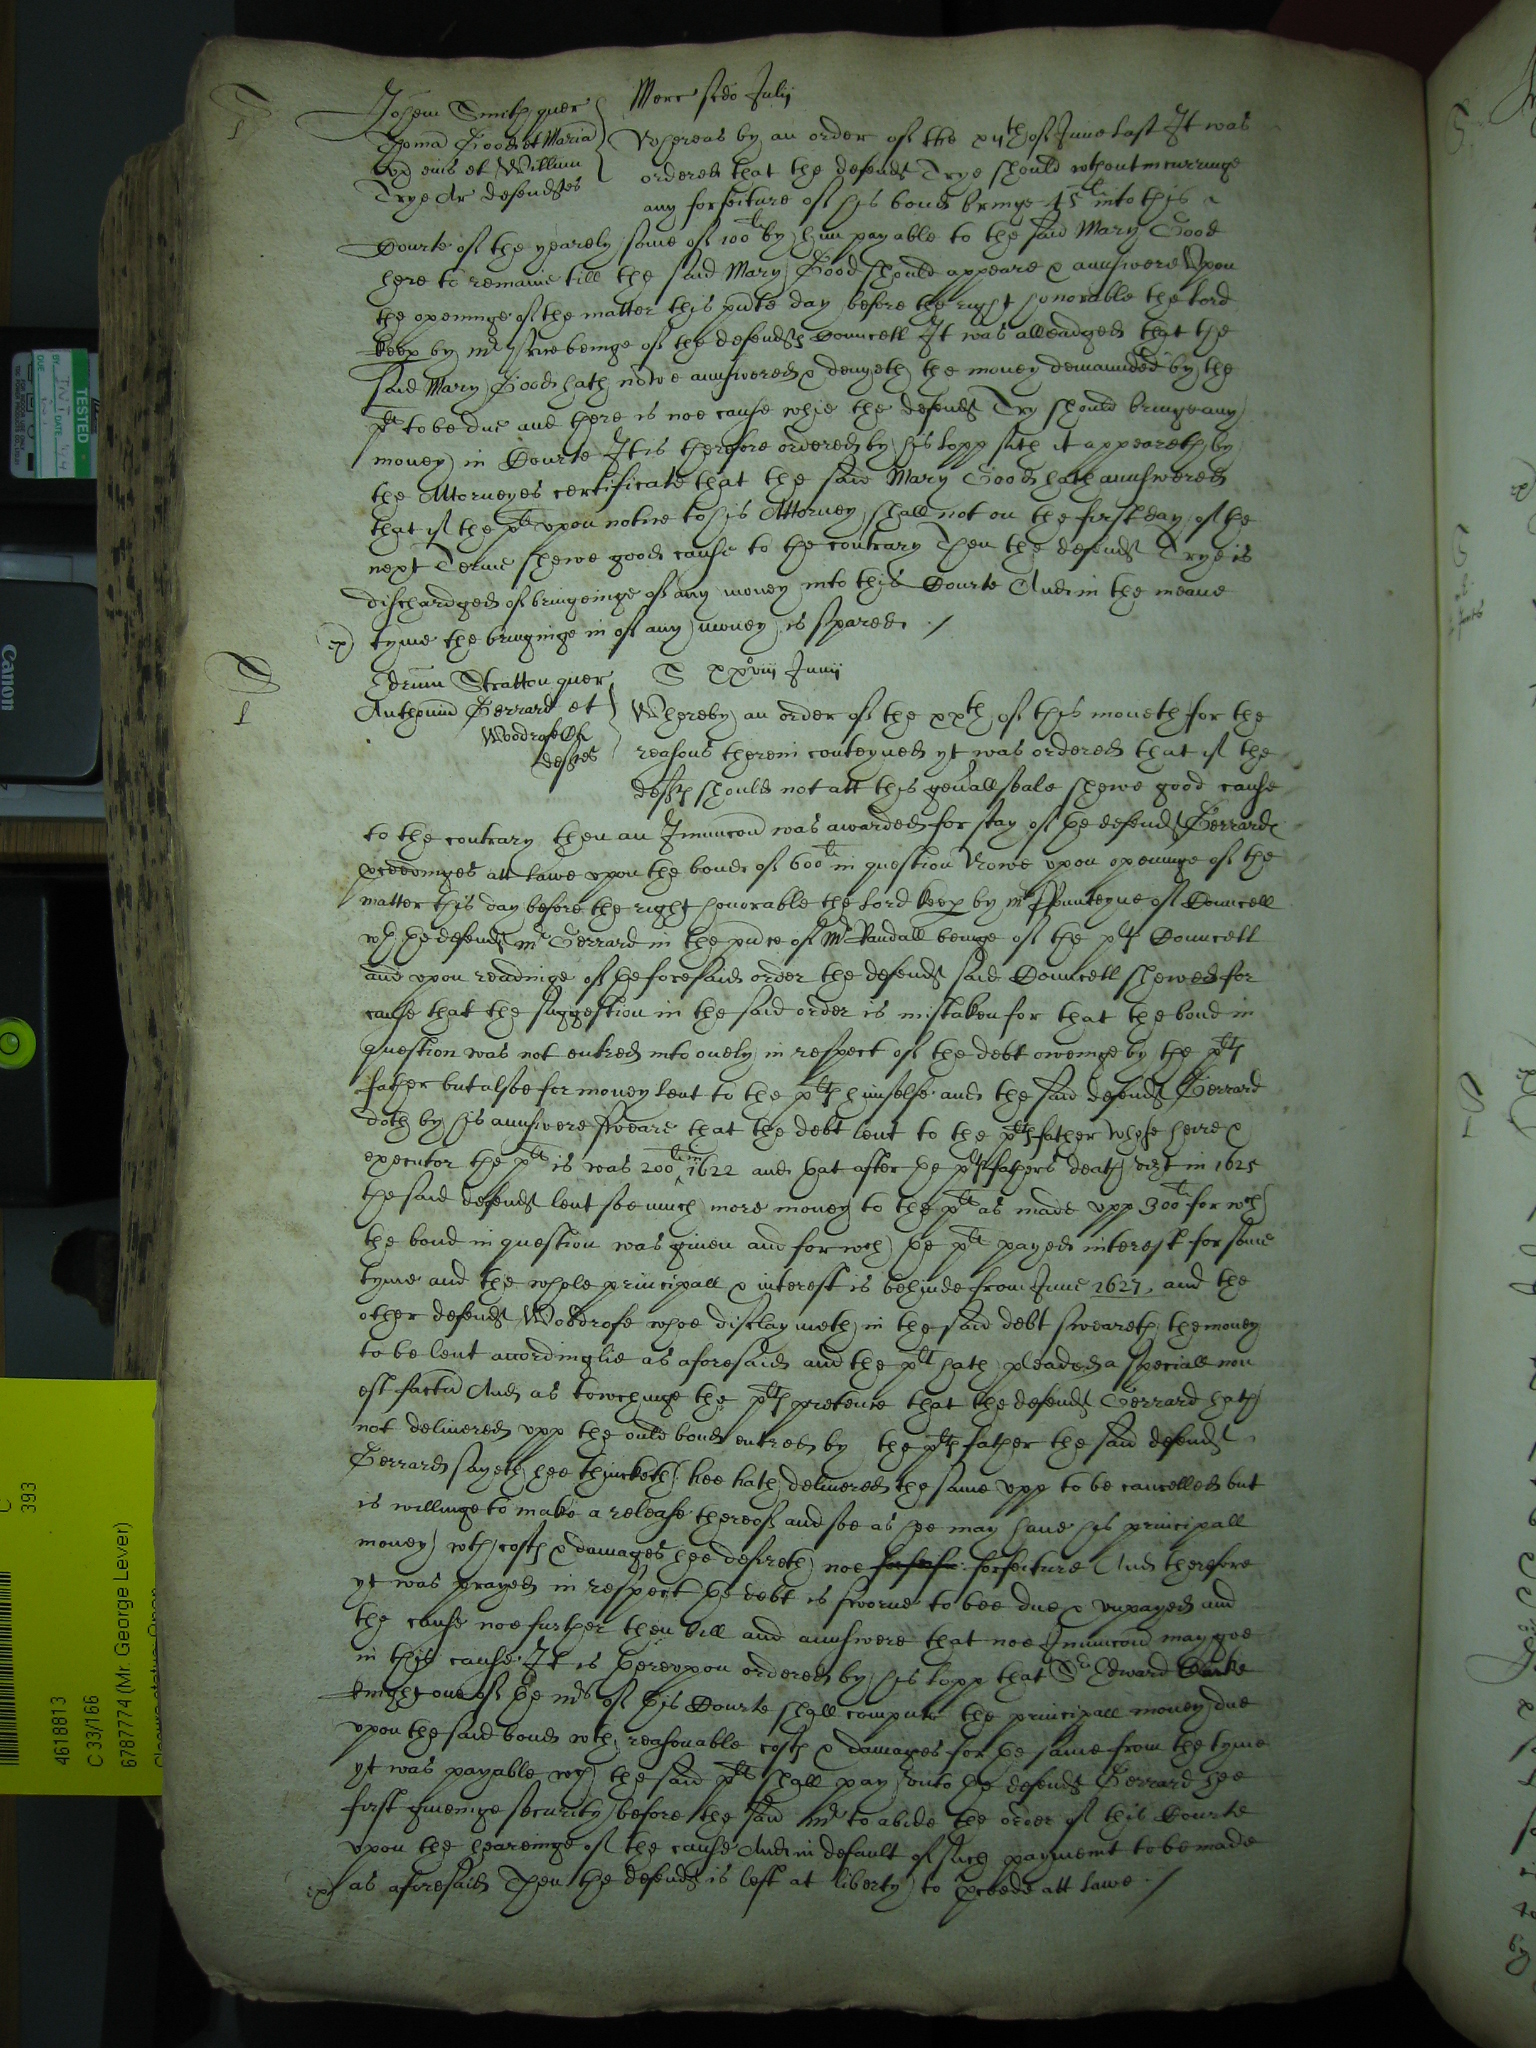 Merc scdo Julij
Johem Smith quer
Thoma Good et Maria
ux eius et Willum
Trye Ar defendtes
Whereas by an order of the xijth of June last It was
ordered that the defendt Trye should wthout incurringe
any forfeiture of his bond bringe 45li into this
Courte of the yearely some of 100li by him payable to the said Mary Good
here to remaine till the said Mary Good should appeare & aunswere Upon
the openinge of the matter this pnte day before the right honorable the Lord
keep by mr beinge of the defendts Councell It was alleadged that the
said Mary Good hath nowe aunswered & denyeth the money demaunded by the
plt to be due and there is noe cause whie the defendt Try should bringe any
money in Courte It is therefore ordered by his lopp sith it appeareth by
the Attorneyes certificate that the said Mary Good hath aunswered
that if the plt upon notice to his Attorney shall not on the first day of the
next Terme shewe good cause to the contrary Then the defendt Trye is
dischardged of bringeinge of any money into this Courte And in the meane
tyme the bringinge in of any money is spared ./
S xxviij Junij
Edrum Stratton quer
Anthonium Gerrard et
Woodrofe
deftes
Whereby an order of the xxth of this moneth for the
reasons therein conteyned yt was ordered that if the
defts should not att this genall seale shewe good cause
to the contrary then an Iniuncon was awarded for stay of the defendt Gerrards
pceedinges att lawe upon the bond of 600li in question Nowe upon openinge of the
matter this day before the right honorable the Lord keep by mr ffounteyne of Councell
wth the defendt mr Gerrard in the pnce of Mr Randall beinge of the plts Councell
and upon readinge of the foresaid order the defendts said Councell shewed for
cause that the suggestion in the said order is mistaken for that the bond in
question was not entred into onely in respect of the debt oweinge by the plts
father but alsoe for money lent to the plt himselfe and the said defendt Gerrard
doth by his aunswere sweare that the debt lent to the plts father whose heire &
executor the plt is was 200li in 1622 and that after the plts fathers death vizt in 1625
the said defendt lent soe much more money to the plt as made upp 300li for wch
the bond in question was given and for wch the plt payed interest for some
tyme and the whole principall & interest is behinde from June 1627, and the
other defendt Woodrofe whoe disclaymeth in the said debt sweareth the money
to be lent accordinglie as aforesaid and the plt hath pleaded a speciall non
est factu And as towchinge the plts pretence that the defendt Gerrard hath
not delivered upp the ould bond entred by the plts father the said defendt
Gerrard sayeth hee thincketh hee hath delivered the same upp to be cancelled but
is willinge to make a release thereof and soe as he may have his principall
money wth costs & damages hee desireth noe forfeiture And therefore
yt was prayed in respect the debt is sworne to bee due & unpayed and
the cause noe further then bill and aunswere that noe Iniuncon may goe
in this cause It is thereupon ordered by his lopp that Sr Edward Clarke
knight one of the mrs of this Courte shall compute the principall money due
upon the said bond wth reasonable costs & damages for the same from the tyme
yt was payable wch the said plt shall pay unto the defendt Gerrard hee
first giveinge security before the said mr to abide the order of this Courte
upon the heareinge of the cause And in default of such payment to be made
as aforesaid Then the defendt is left at liberty to pceede att lawe ./
TESTED
Canon
C
393
4618813
C 33/166
6787774 (Mr. George Lever)